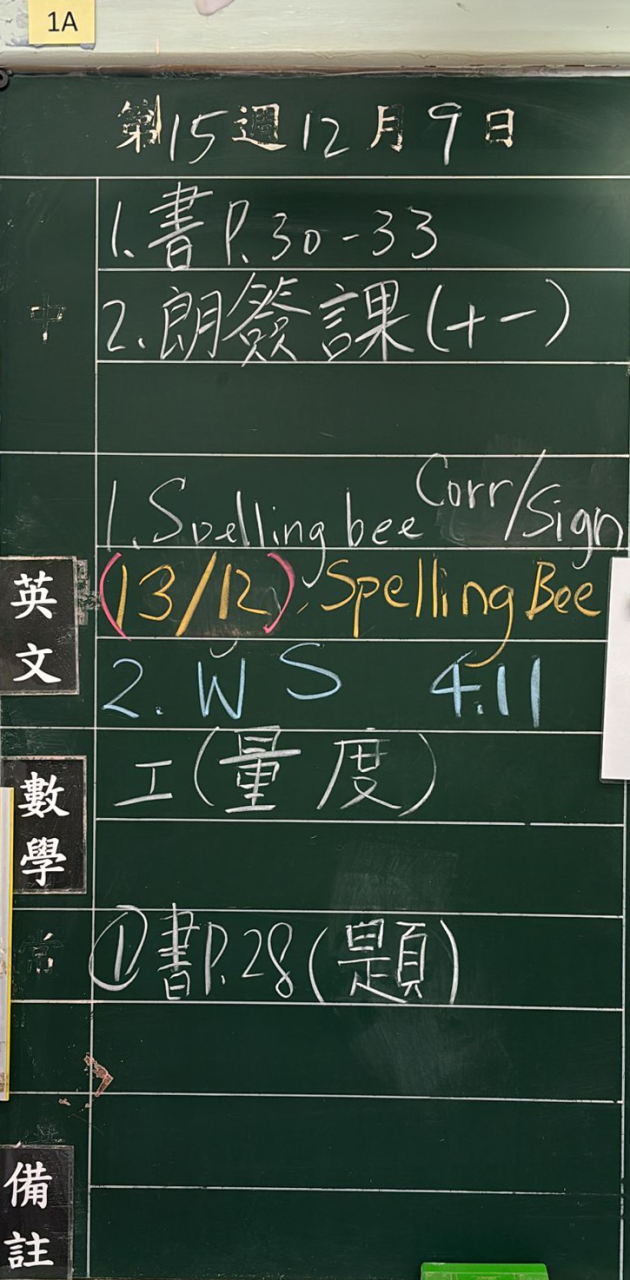 1A
第15週12月9日
中
1.書P.30-33
2.朗簽課(十一)
英文
1.Spelling bee Corr/Sign
(13/12), Spelling Bee
2. WS 4.11
數學
工(量度)
①書P.28(題)
備註